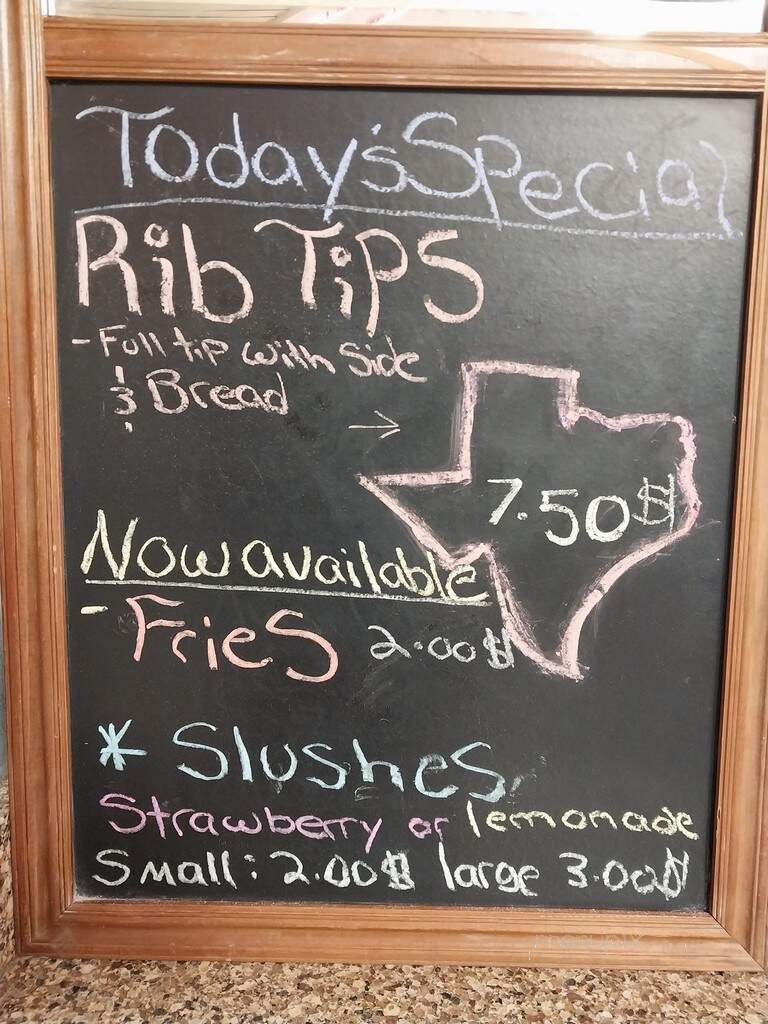 Today's Special
Rib Tips
- Full tip with side
& Bread
→ 7.50$
Now available
- Fries 2.00$
* Slushes
Strawberry or lemonade
Small: 2.00$ large 3.00$